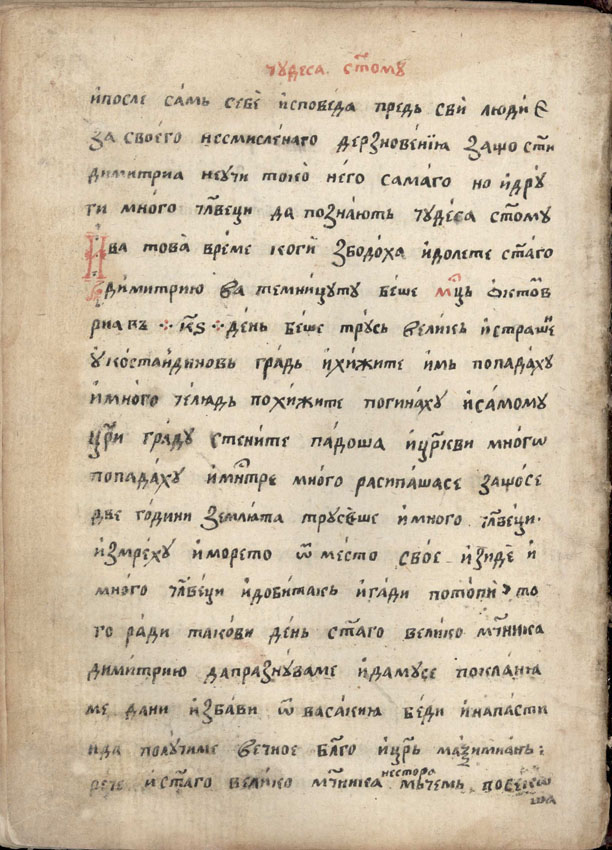 чꙋдеса. ст҃омꙋ
ѝпосле са́мь себѐ и҆споведа предь сви̇̀ лю́ди є҆
за своего несмисле́наго дерзнове́нїѧ защо ст҃и
димитриа неꙋчи токо̀ не́го сама́го но и҆дрꙋ
ги мно́го чл҃веци да позна́ють чꙋде́са ст҃омꙋ
ва това̀ вре́ме коги̇̀ збодо́ха и҆долете ст҃а́го
димитрию ва темницꙋтꙋ беше мц҃ь ѻ҆ктѡ҃в
риа въ ·к҃ѕ· день беше трꙋсь великь и҆страшен
ꙋ҆костаидиновь гра́дь и҆хи́жите и҆мь попада́хꙋ
и҆мно́го те́людь похи́жите погина́хꙋ и҆са́момꙋ
цр҃и гра́дꙋ стени́те па́доша и҆цр҃кви мно́гѡ
попада́хꙋ и҆мн҃тре мно́го расипа́шасе защо́се
две го́дини земла́та трꙋсе́ше и҆ мно́го чл҃веци.
и҆змре́хꙋ и҆мо́рето ѿ ме́сто свое и҆зидѐ и҆
мно́го чл҃ве́ци и҆доби́такь и҆га́ди потопи̇̀ то
го ра́ди такови день ст҃а́го вели́ко мч҃ника
димитрию дапразнꙋ́ваме и҆да́мꙋсе покла́нѧ
ме дани и҆зба́ви ѿ васа́кию беди и҆напасти
ида полꙋчиме вечное бл҃го и҆цр҃ь мазимиань:
рече и҆ст҃а́го вели́ко мч҃ника нестора мьчемь посекѡ
ша